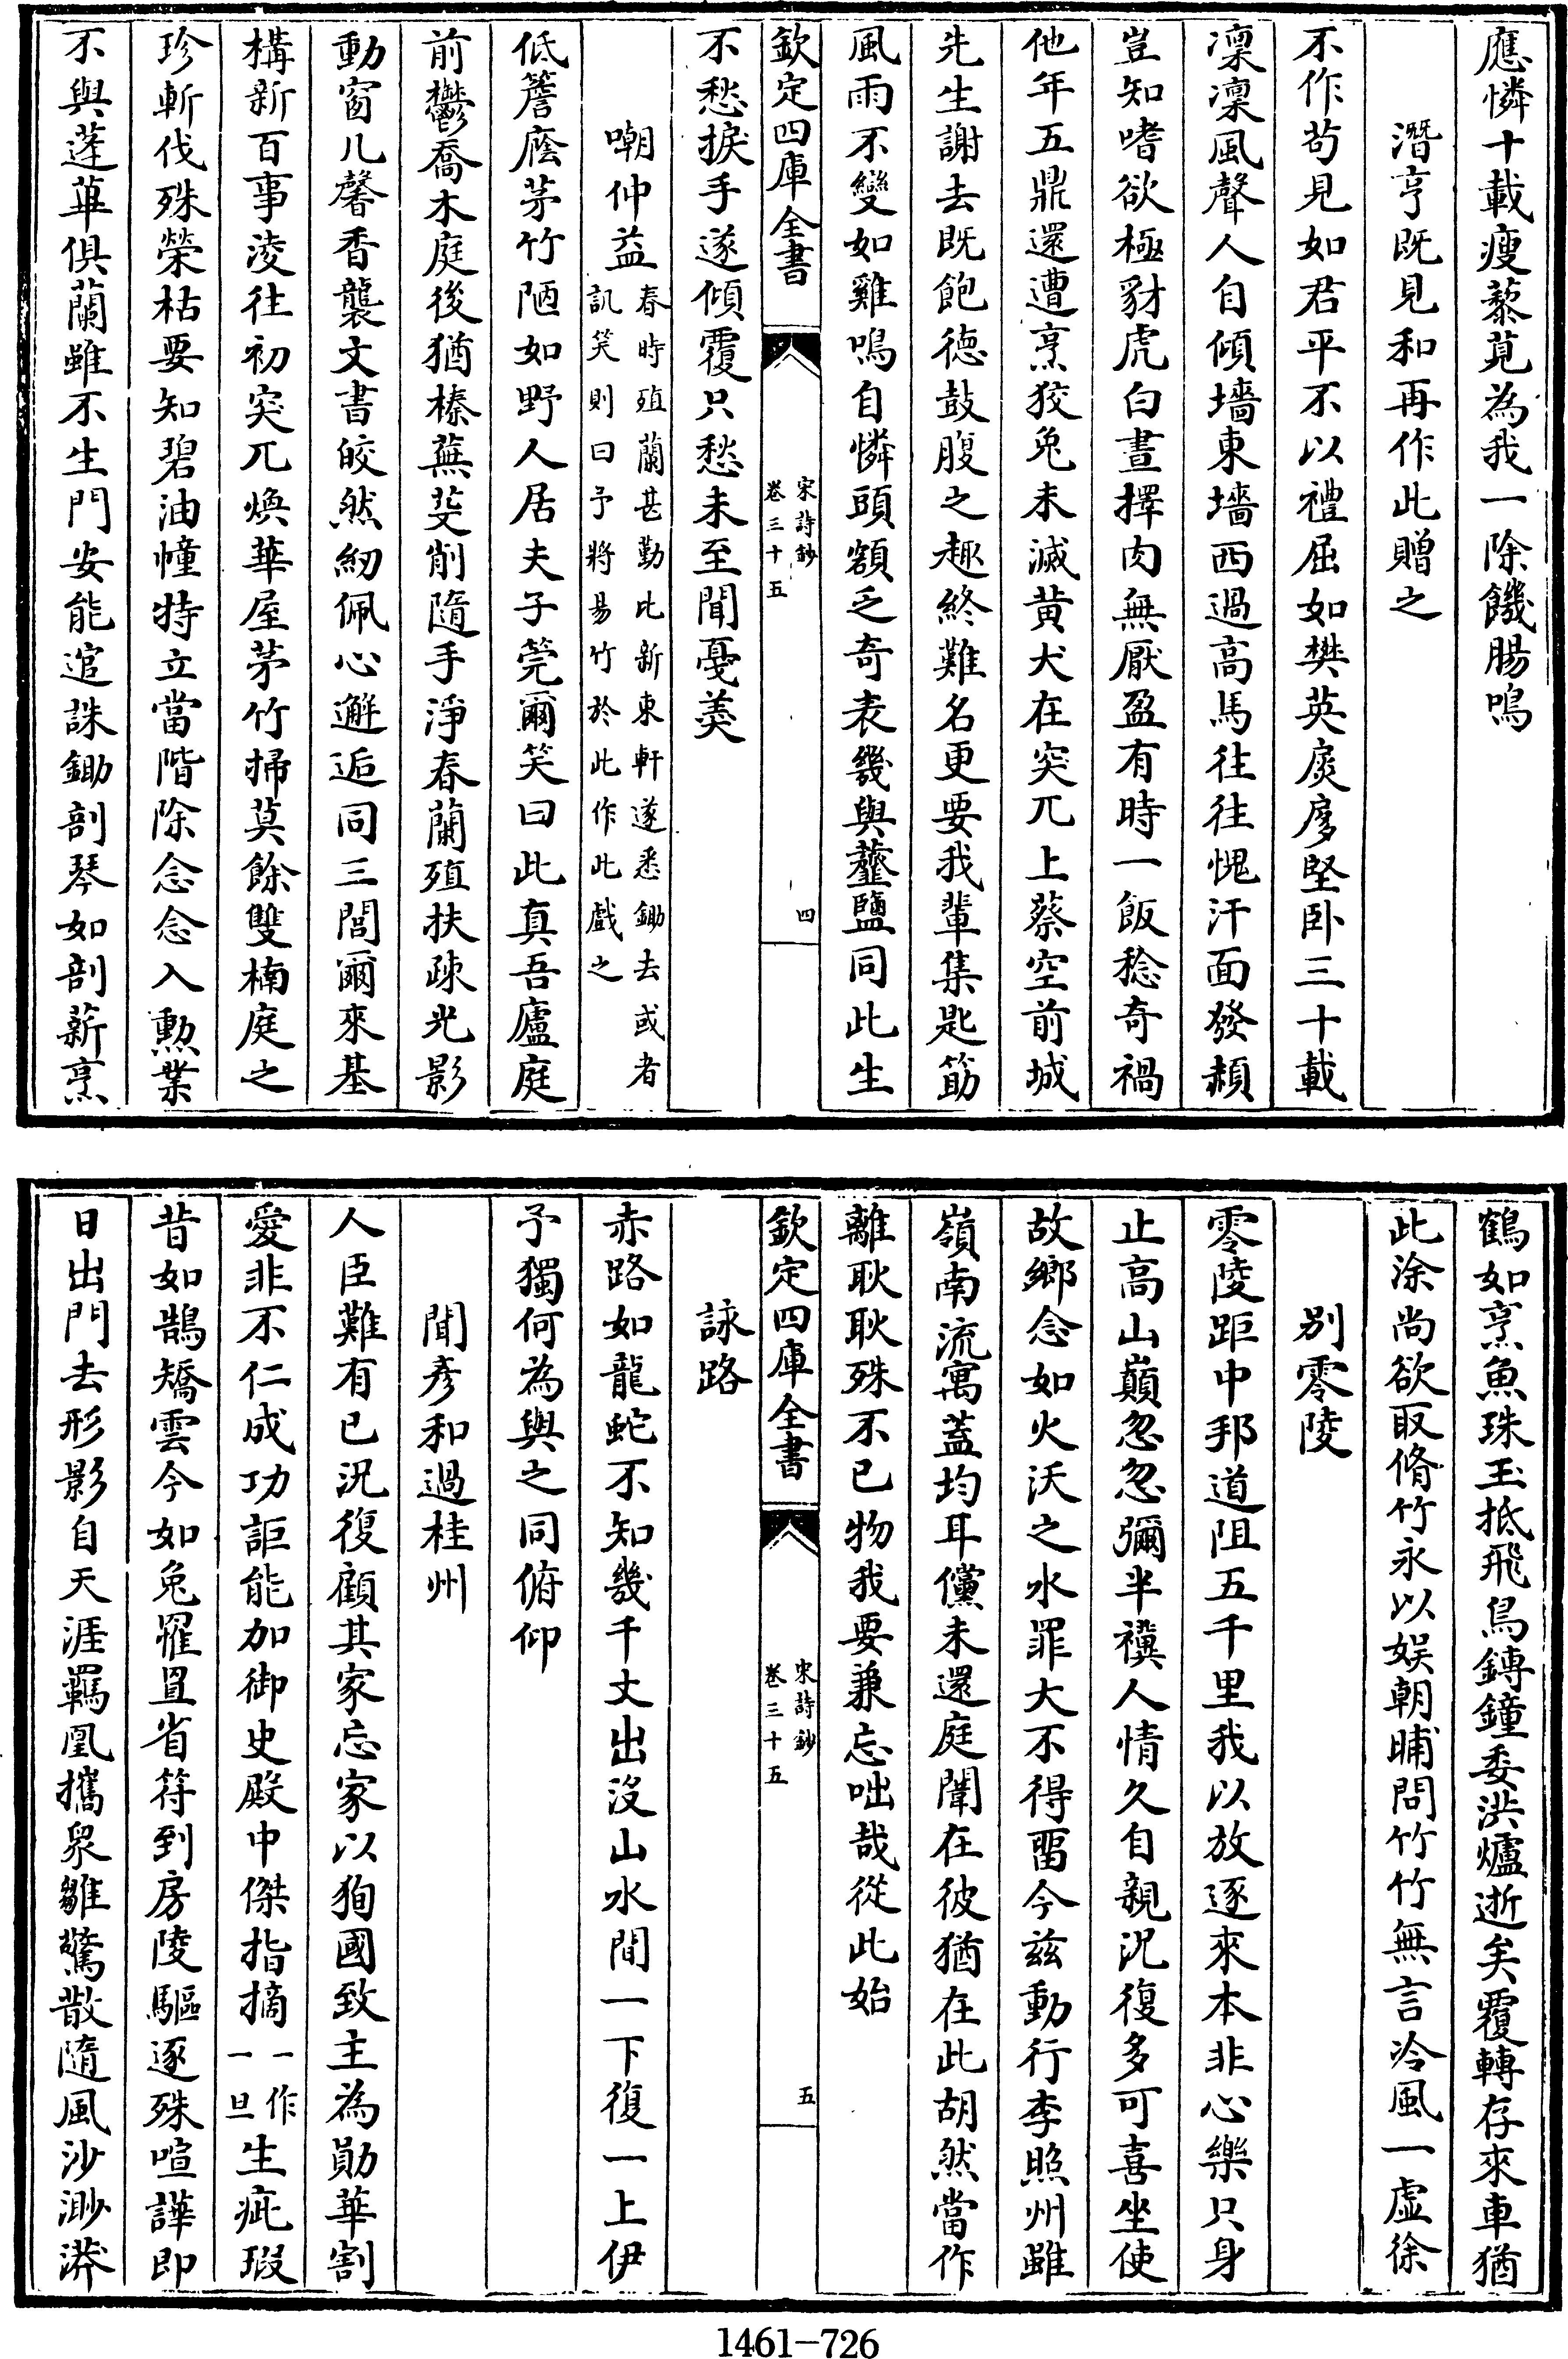 應憐十載瘦藜莧為我一除饑腸鳴
潛亨既見和再作此贈之
不作苟見如君平不以禮屈如樊英扊扅堅卧三十載
凛凛風聲人自傾墻東墻西過高馬往往愧汗面發頳
豈知嗜欲極豺虎白晝擇肉無厭盈有時一飯稔奇禍
他年五鼎還遭烹狡兔未滅黄犬在突兀上蔡空前城
先生謝去既飽德鼓腹之趣終難名更要我輩集匙筯
風雨不變如雞鳴自憐頭額乏奇表幾與虀鹽同此生
欽定四庫全書
宋詩鈔
卷三十五
四
不愁捩手遂傾覆只愁未至聞戞羮
嘲仲益
春時殖蘭甚勤比新東軒遂悉鋤去或者
訊笑則曰予將易竹於此作此戲之
低簷廕茅竹陋如野人居夫子莞爾笑曰此真吾廬庭
前鬱喬木庭後猶榛蕪芟削隨手淨春蘭殖扶疎光影
動窗几馨香襲文書皎然紉佩心邂逅同三閭爾來基
構新百事淩往初突兀煥華屋茅竹掃莫餘雙楠庭之
珍斬伐殊榮枯要知碧油幢特立當階除念念入勲業
不與蓬蓽俱蘭雖不生門安能逭誅鋤剖琴如剖薪烹
鶴如烹魚珠玉抵飛鳥鏄鐘委洪爐逝矣覆轉存來車猶
此涂尚欲取脩竹永以娱朝晡問竹竹無言冷風一虛徐
别零陵
零陵距中邦道阻五千里我以放逐來本非心樂只身
止高山巔忽忽彌半禩人情久自親況復多可喜坐使
故鄉念如火沃之水罪大不得畱今兹動行李照州雖
嶺南流寓蓋均耳儻未還庭闈在彼猶在此胡然當作
離耿耿殊不已物我要兼忘咄哉從此始
欽定四庫全書
宋詩鈔
卷三十五
五
詠路
赤路如龍蛇不知幾千丈出沒山水間一下復一上伊
予獨何為與之同俯仰
聞彥和過桂州
人臣難有已況復顧其家忘家以狥國致主為勛華割
愛非不仁成功詎能加御史殿中傑指摘一作一旦生疵瑕
昔如鵠矯雲今如兔罹罝省符到房陵驅逐殊喧譁即
日出門去形影自天涯羈凰攜衆雛驚散隨風沙渺漭
1461-726